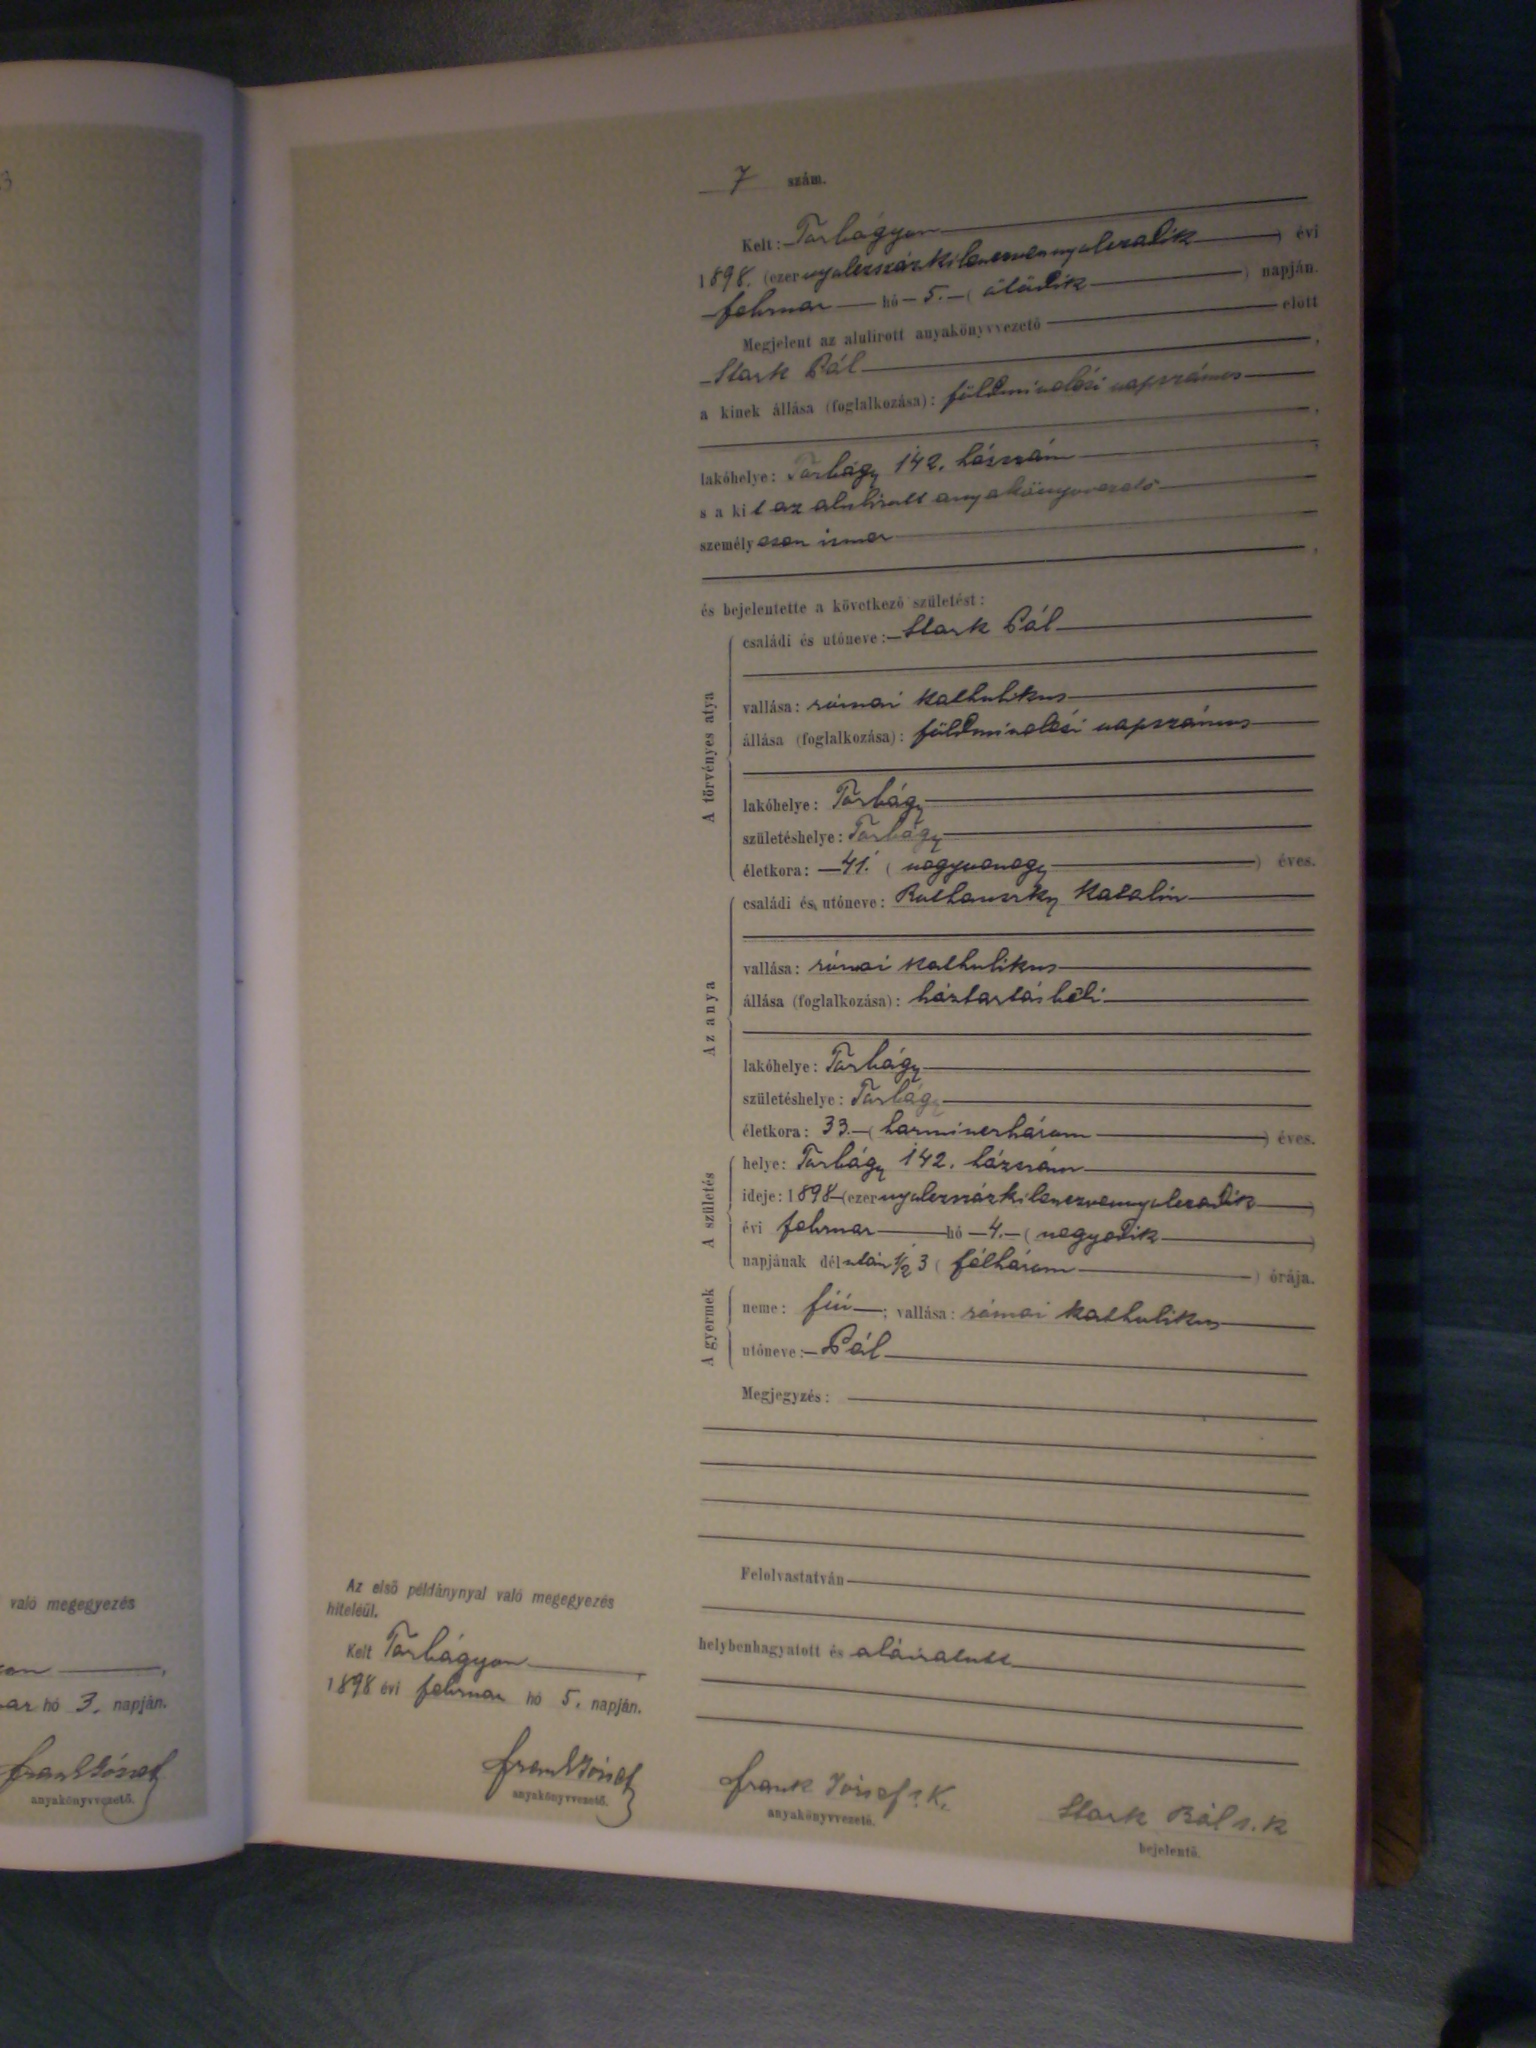 3
7 szám.
Kelt: Torbágyon
1898. (ezernyolczszázkilenczvennyolczadik) évi
februar hó 5. (ötödik) napján.
Megjelent az alulirott anyakönyvvezető előtt
Stark Pál,
a kinek állása (foglalkozása): földmivelési napszámos,
lakóhelye: Torbágy 142. házszám,
s a kit az alulirott anyakönyvvezető
személyesen ismer,
és bejelentette a következő születést:
A törvényes atya
családi és utóneve: Stark Pál
vallása: római katholikus
állása (foglalkozása): földmivelési napszámos
lakóhelye: Torbágy
születéshelye: Torbágy
életkora: 41. (negyvenegy) éves.
Az anya
családi és utóneve: Rothauszky Katalin
vallása: római katholikus
állása (foglalkozása): háztartásbeli
lakóhelye: Torbágy
születéshelye: Torbágy
életkora: 33. (harminczhárom) éves.
A születés
helye: Torbágy 142. házszám
ideje: 1898 (ezernyolczszázkilenczvennyolczadik)
évi februar hó 4. (negyedik)
napjának délután 1/2 3 (félhárom) órája.
A gyermek
neme: fiú; vallása: római katholikus
utóneve: Pál
Megjegyzés:
Felolvastatván
helybenhagyatott és aláiratott
Frank József s. k.
anyakönyvvezető.
Stark Pál s. k
bejelentő.
Az első példánynyal való megegyezés
hiteléül.
Kelt Torbágyon,
1898 évi februar hó 5. napján.
Frank József
anyakönyvvezető.
való megegyezés
hó 3. napján.
Frank József
anyakönyvvezető.